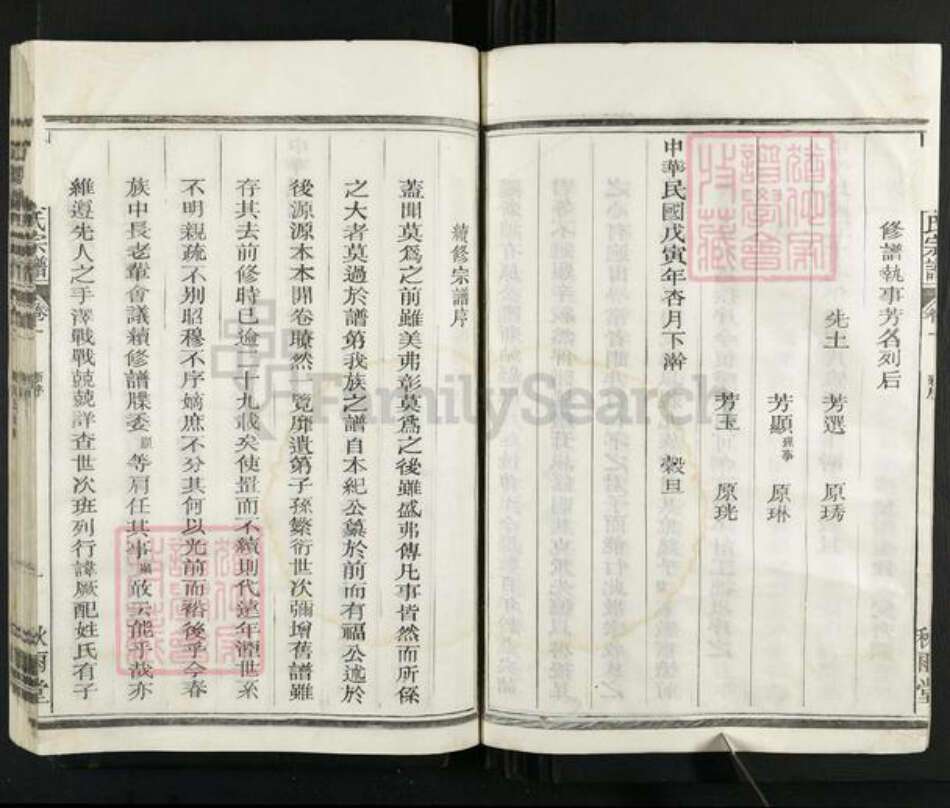 修譜執事芳名列后
先士 芳選 原琇
芳顯 原琳
芳玉 原珖
中華民國戊寅年杏月下澣 穀旦
氏宗譜
秋雨堂
續修宗譜序
蓋聞莫爲之前雖美弗彰莫爲之後雖盛弗傳凡事皆然而所係
之大者莫過於譜第我族之譜自本紀公纂於前而有福公述於
後源源本本開卷瞭然一覽靡遺第子孫繁衍世次彌增舊譜雖
存其去前修時已逾二十九載矣使置而不續則代遠年湮世系
不明親疏不別昭穆不序嫡庶不分其何以光前而裕後乎今春
族中長老輩會議續修譜牒委 等肩任其事 敢云能乎哉亦
維遵先人之手澤戰戰兢兢詳查世次班列行諱厥配姓氏有子
氏宗譜
秋雨堂
FamilySearch